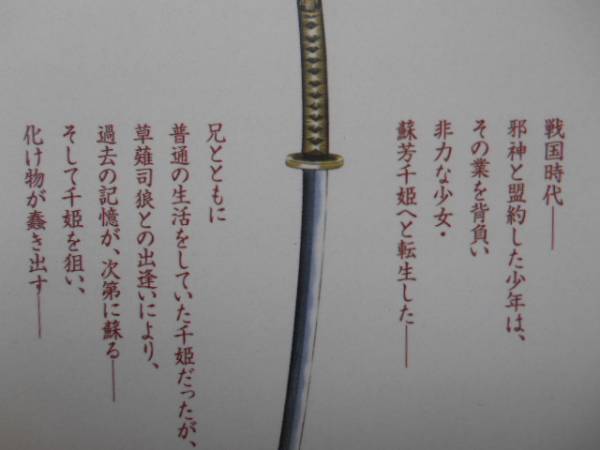 戦国時代――
邪神と盟約した少年は、
その業を背負い
非力な少女・
蘇芳千姫へと転生した――
兄とともに
普通の生活をしていた千姫だったが、
草薙司狼との出逢いにより、
過去の記憶が、次第に蘇る――
そして千姫を狙い、
化け物が蠢き出す――